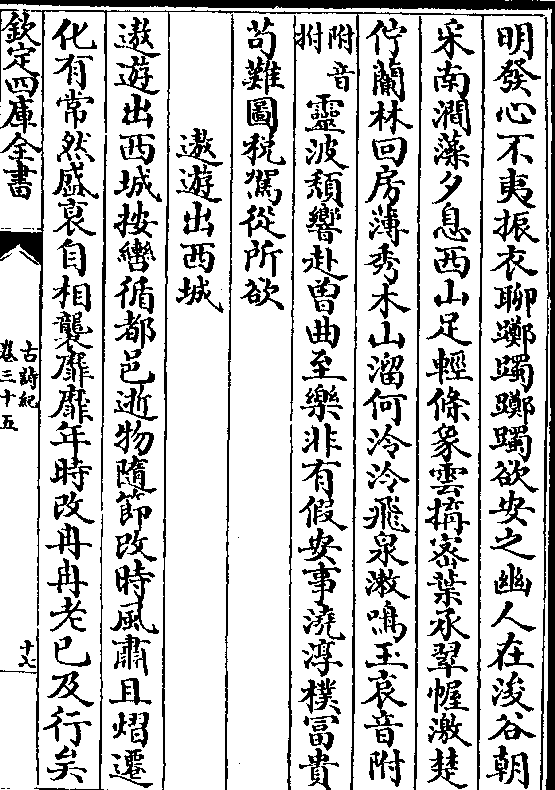 明發心不夷振衣聊躑躅躑躅欲安之幽人在浚谷朝
采南澗藻夕息西山足輕條象雲搆宻葉承翠幄激楚
佇蘭林回房薄秀木山溜何泠泠飛泉漱鳴玉哀音附
附音拊
靈波頽響赴曽曲至樂非有假安事澆淳樸富貴
茍難圖税駕從所欲
遨遊出西城
遨遊出西城按轡循都邑逝物隨節改時風肅且熠遷
化有常然盛衰自相襲靡靡年時改冉冉老已及行矣
欽定四庫全書
古詩紀
卷三十五
十七